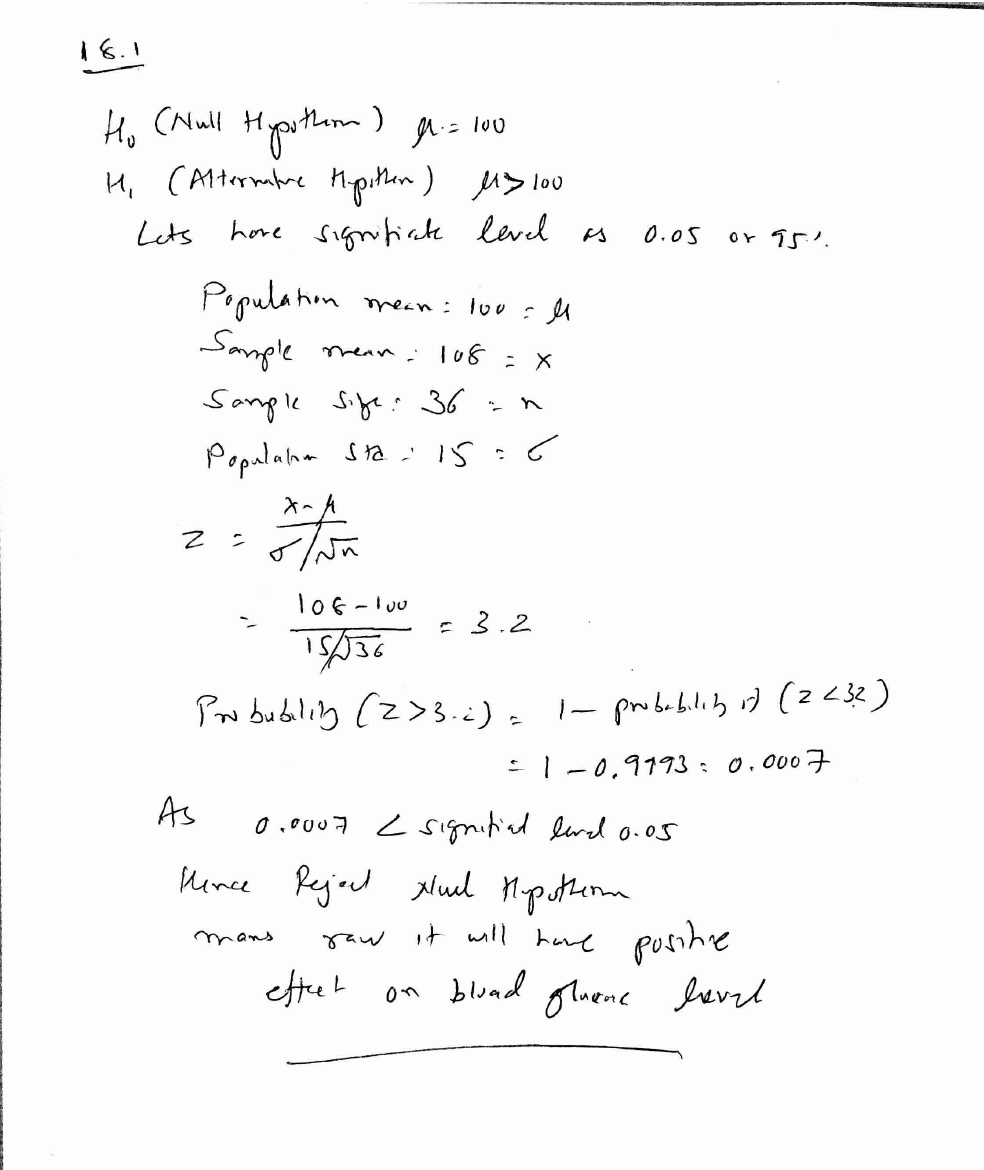 18.1
H₀ (Null Hypothem) μ = 100
H₁ (Alternative Hypithen) μ > 100
Lets have signifiate level as 0.05 or 95%.
Population mean : 100 = μ
Sample mean : 108 = x
Sample size : 36 = n
Population std : 15 = σ
z = x-μ / σ/√n
= 108-100 / 15/√36 = 3.2
Probubility (z>3.2) = 1 - probability of (z<3.2)
= 1 - 0.9993 = 0.0007
As 0.0007 < signifial level 0.05
Hence Reject Null Hypotherm
means raw it will have positive
effect on blood glucose level